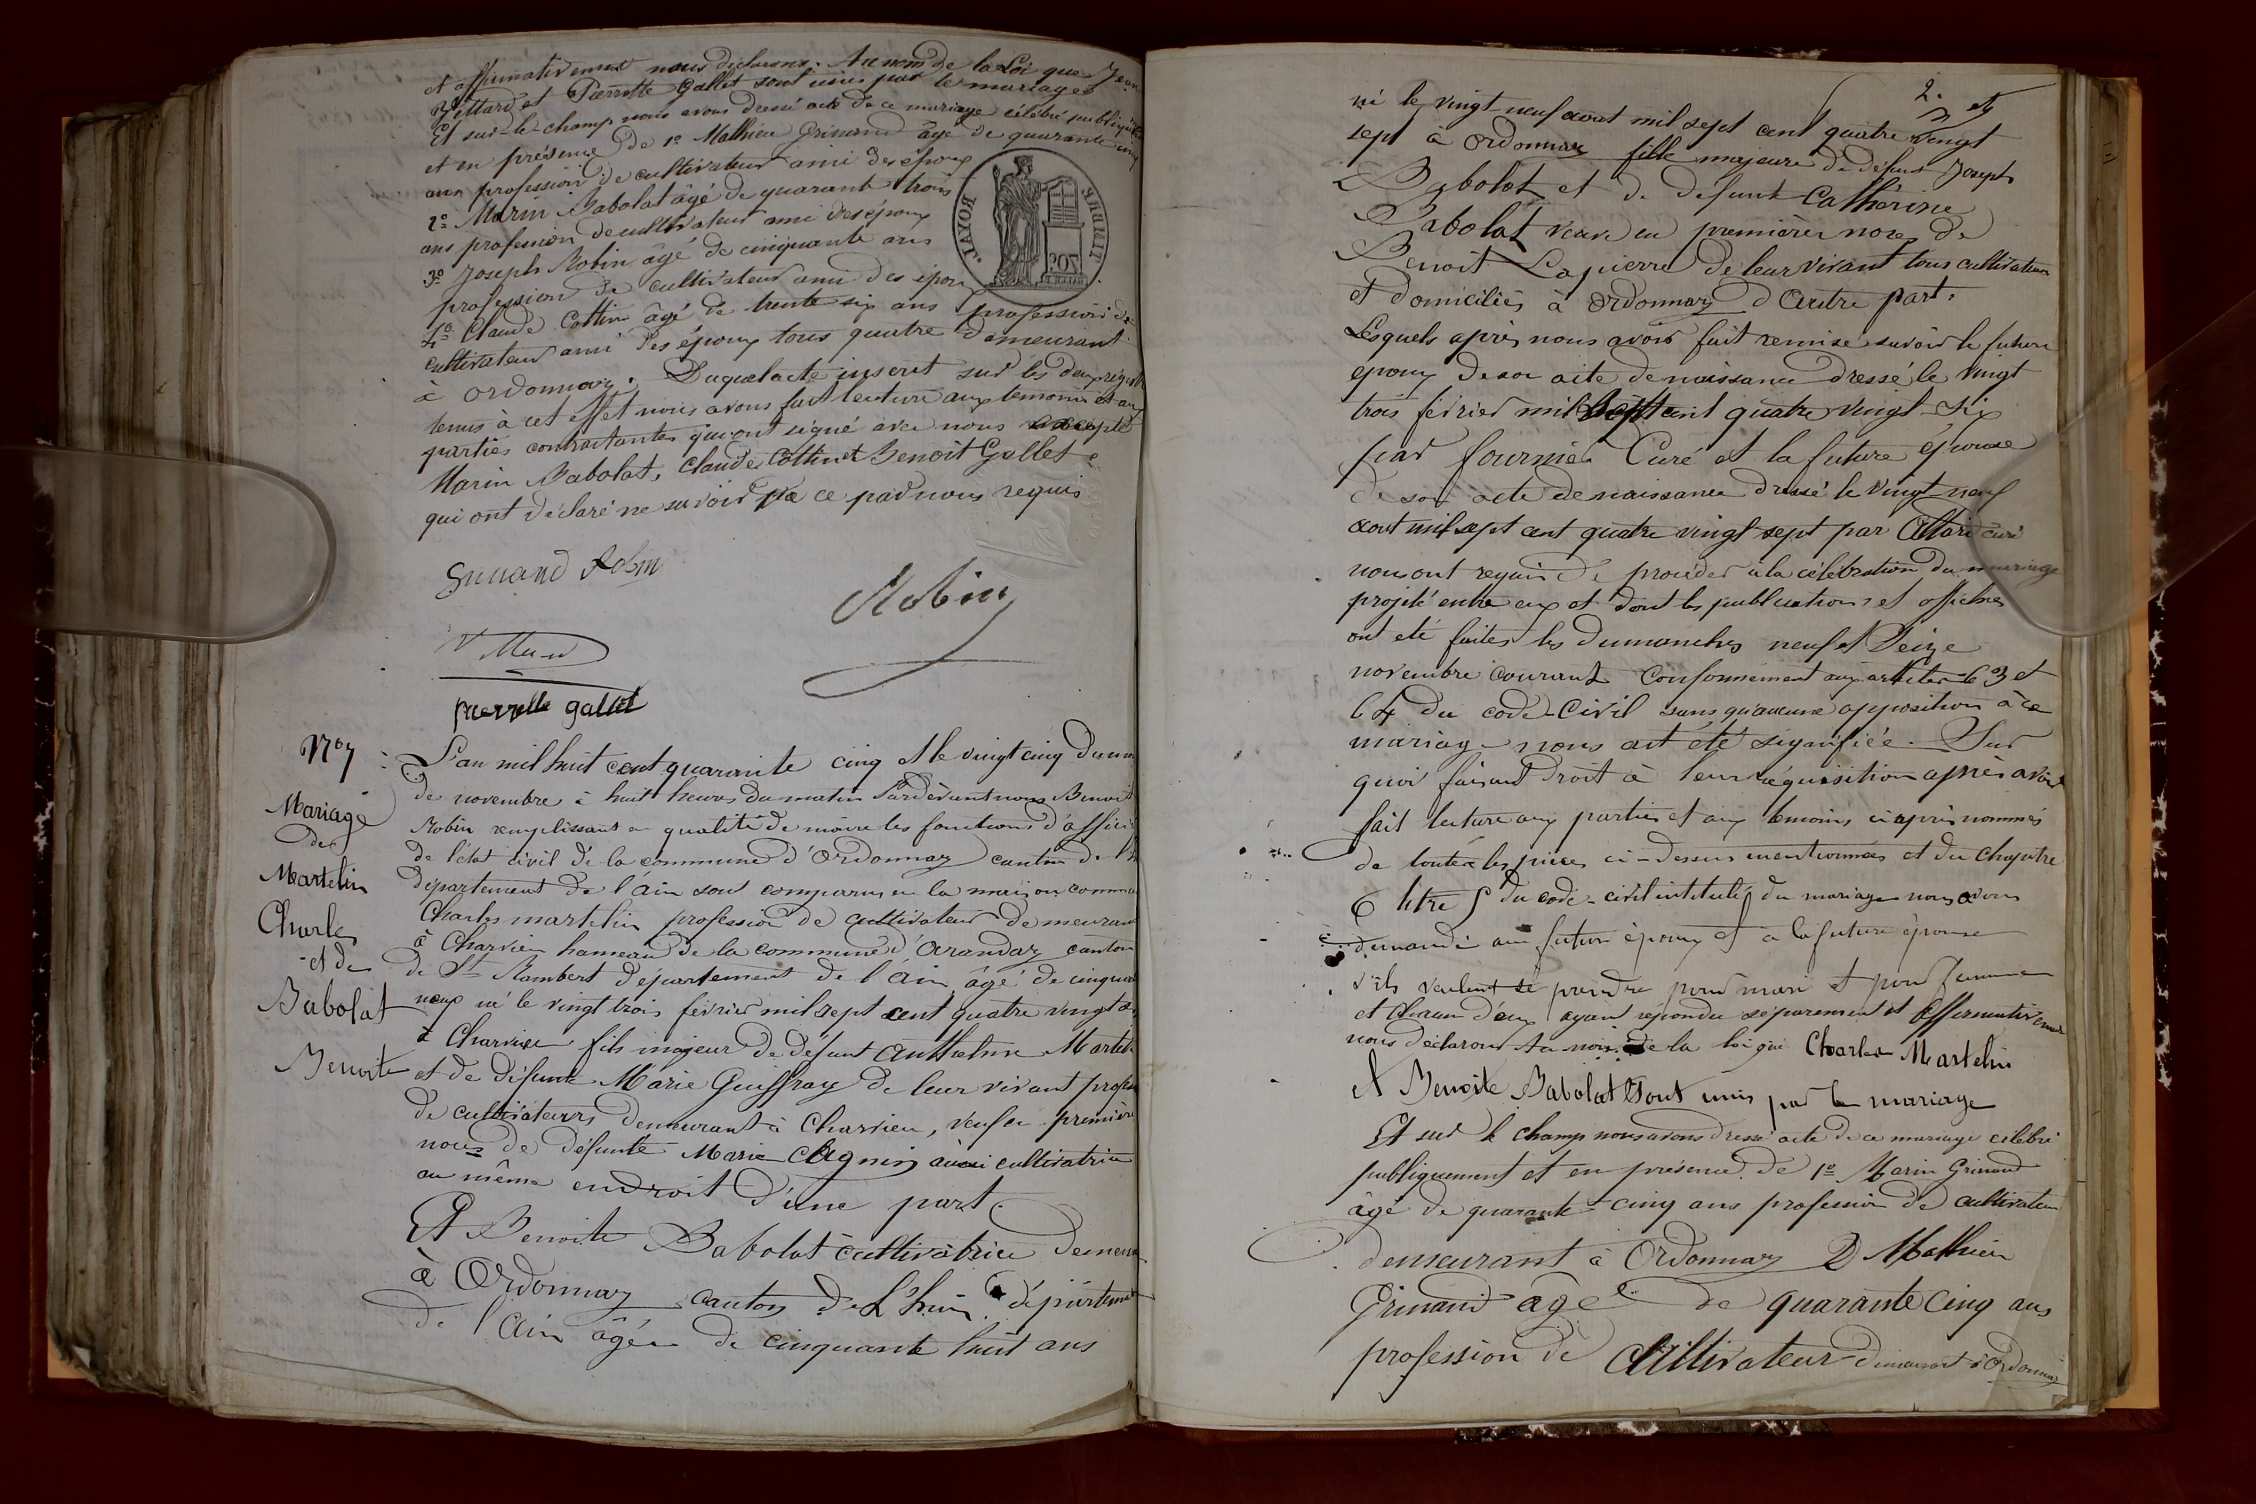 et affirmativement nous declarons. Au nom de la Loi que Jean
Villard et Pierrette Gallet sont unis par le mariage
Et sur-le-champ nous avons dressé acte de ce mariage célébré publiquᵗ
et en présence de 1º Mathieu Grinand âgé de quarante cinq
ans profession de cultivateur ami des époux
2º Marin Babolat âgé de quarante trois
ans profession de cultivateur ami des époux
3º Joseph Robin âgé de cinquante ans
profession de cultivateur ami des époux
4º Claude Cottin âgé de trente six ans profession de
cultivateur ami des époux tous quatre demeurant
à ordonnaz. Duquel acte inscrit sur les deux regist
tenus à cet effet nous avons fait lecture aux temoins et aux
parties contractantes qui ont signé avec nous excepté
Marin Babolat, Claude Cottin et Benoit Gallet
qui ont déclaré ne savoir de ce par nous requis
TIMBRE ROYAL
Grinand Robin
Robin
Villard
pierrette gallet
Nº 7
Mariage
de
Martelin
Charles
et de
Babolat
Benoite
L'an mil huit cent quarante cinq et le vingt cinq du m
de novembre à huit heures du matin Pardevant nous Benoit
Robin remplissant en qualité de maire les fonctions d'offici
de l'état civil de la commune d'Ordonnaz canton de l'h
département de l'ain sont comparus en la maison commu
Charles martelin profession de cultivateur demeurant
à Charvieu hameau de la commune d'arandaz canton
de St Rambert département de l'ain âgé de cinquan
neuf né le vingt trois février mil sept cent quatre vingt s
à Charvieu fils majeur de défunt Anthelme Marteli
et de défunte Marie Guiffray de leur vivant profess
de cultivateurs demeurant à Charvieu, veuf en premiere
noces de défunte Marie Cagnin aussi cultivatrice
au même endroit d'une part.
Et Benoite Babolat cultivatrice demeu
à Ordonnaz canton de L'huis département
de l'ain âgée de cinquante huit ans
2.
né le vingt neuf aout mil sept cent quatre vingt et
sept à Ordonnaz fille majeure de défunt Joseph
Babolat et de defunte Catherine
Babolat veuve en premières noces de
Benoit Lapierre de leur vivant tous cultivateurs
et domiciliés à Ordonnaz d'autre part.
Lesquels après nous avoir fait remise savoir le futur
epoux de son acte de naissance dressé le vingt
trois février mil sept cent quatre vingt-six
par fournier Curé et la future épouse
de son acte de naissance dressé le vingt neuf
aout mil sept cent quatre vingt sept par Allard curé
nous ont requis de procéder à la célébration du mariage
projeté entre eux et dont les publications et affiches
ont été faites les dimanches neuf et seize
novembre courant conformément aux articles 63 et
64 du code-Civil sans qu'aucune opposition à ce
mariage nous ait été signifiée. Sur
quoi faisant droit à leur réquisition après avoir
fait lecture aux parties et aux temoins ci après nommés
de toutes les pièces ci-dessus mentionnées et du chapitre
6 titre 5 du code-civil intitulé du mariage nous avons
demandé au futur époux et a la future épouse
s'ils veulent se prendre pour mari et pour femme
et chacun d'eux ayant répondu séparement et affirmativement
nous déclarons Au nom de la loi que Charles Martelin
et Benoite Babolat sont unis par le mariage
Et sur le champ nous avons dressé acte de ce mariage célébré
publiquement et en présence de 1º Marin Grinand
âgé de quarante-cinq ans profession de cultivateur
demeurant à Ordonnaz 2 Mathieu
Grinand âgé de quarante cinq ans
profession de Cultivateur demeurant à Ordonnaz